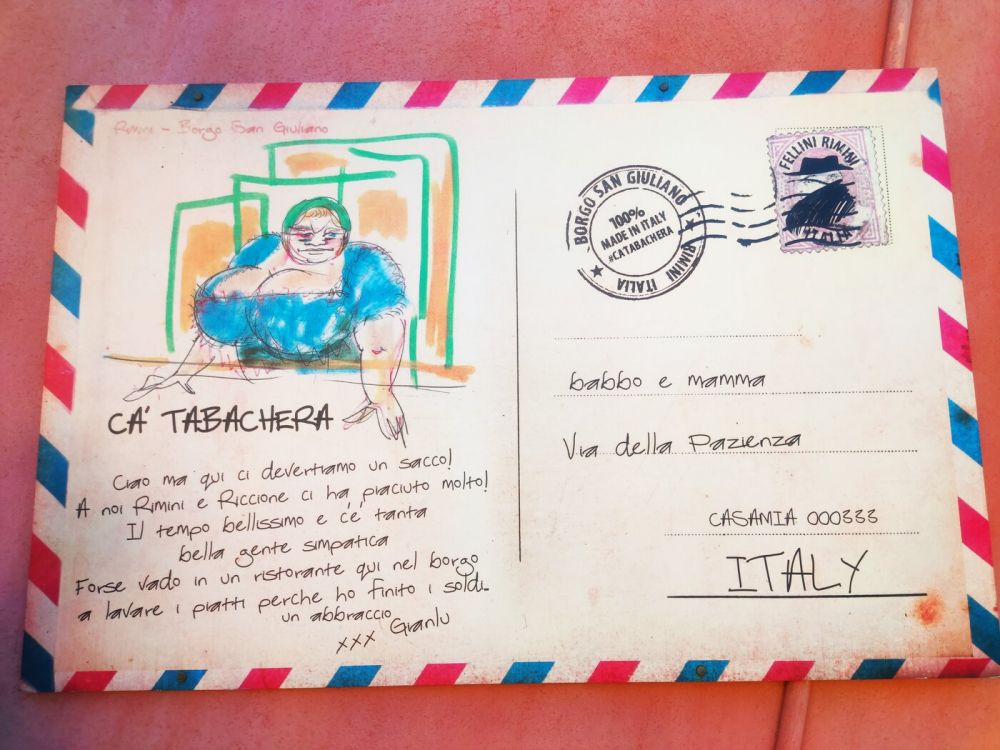 Rimini - Borgo San Giuliano
CA' TABACHERA
Ciao ma qui ci devertiamo un sacco!
A noi Rimini e Riccione ci ha piaciuto molto!
Il tempo bellissimo e c'è tanta
bella gente simpatica
Forse vado in un ristorante qui nel borgo
a lavare i piatti perche ho finito i soldi...
un abbraccio
xxx Gianlu
BORGO SAN GIULIANO
RIMINI ITALIA
100%
MADE IN ITALY
#CATABACHERA
FELLINI RIMINI
ITALIA
babbo e mamma
Via della Pazienza
CASAMIA 000333
ITALY